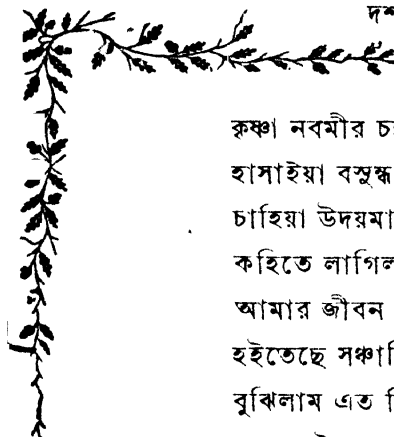 দশ
কৃষ্ণা নবমীর চ
হাসাইয়া বসুন্ধ
চাহিয়া উদয়মা
কহিতে লাগিল
আমার জীবন
হইতেছে সঞ্চা
বুঝিলাম এত